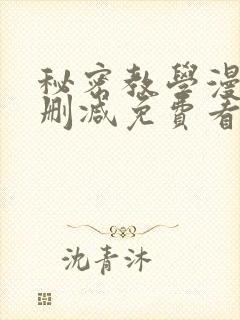 秘密教學漫
刪減免費看
沈青沐